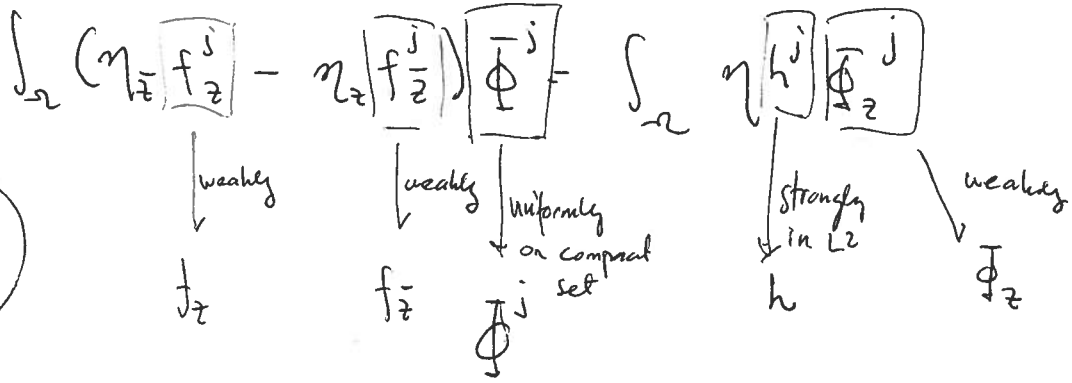 ∫_Ω (η_z̄ f^j_z − η_z f^j_z̄) Φ^j − ∫_Ω η h^j Φ^j_z
weakly weakly uniformly on compact set strongly in L2 weakly
f_z f_z̄ Φ^j h Φ_z